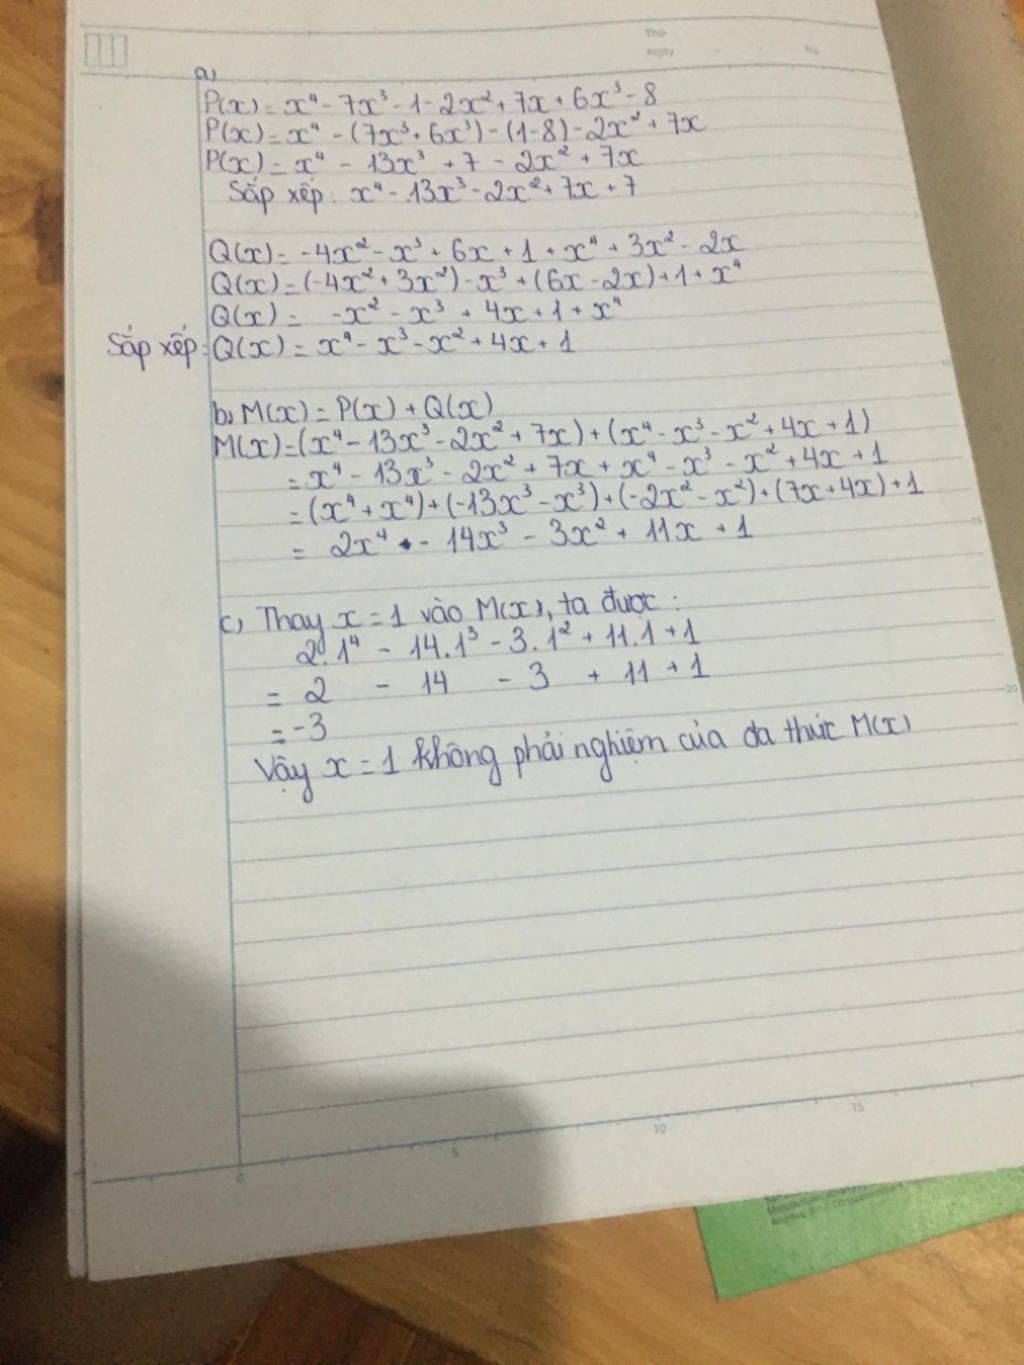 Thứ
Ngày
No
a,
P(x) = x⁴ - 7x³ - 1 - 2x² + 7x + 6x³ - 8
P(x) = x⁴ - (7x³ + 6x³) - (1-8) - 2x² + 7x
P(x) = x⁴ - 13x³ + 7 - 2x² + 7x
Sắp xếp: x⁴ - 13x³ - 2x² + 7x + 7
Q(x) = -4x² - x³ + 6x + 1 + x⁴ + 3x² - 2x
Q(x) = (-4x² + 3x²) - x³ + (6x - 2x) + 1 + x⁴
Q(x) = -x² - x³ + 4x + 1 + x⁴
Sắp xếp: Q(x) = x⁴ - x³ - x² + 4x + 1
b, M(x) = P(x) + Q(x)
M(x) = (x⁴ - 13x³ - 2x² + 7x) + (x⁴ - x³ - x² + 4x + 1)
= x⁴ - 13x³ - 2x² + 7x + x⁴ - x³ - x² + 4x + 1
= (x⁴ + x⁴) + (-13x³ - x³) + (-2x² - x²) + (7x + 4x) + 1
= 2x⁴ - 14x³ - 3x² + 11x + 1
c, Thay x = 1 vào M(x), ta được:
2.1⁴ - 14.1³ - 3.1² + 11.1 + 1
= 2 - 14 - 3 + 11 + 1
= -3
Vậy x = 1 không phải nghiệm của đa thức M(x)
10
15
20
0 5 10 15